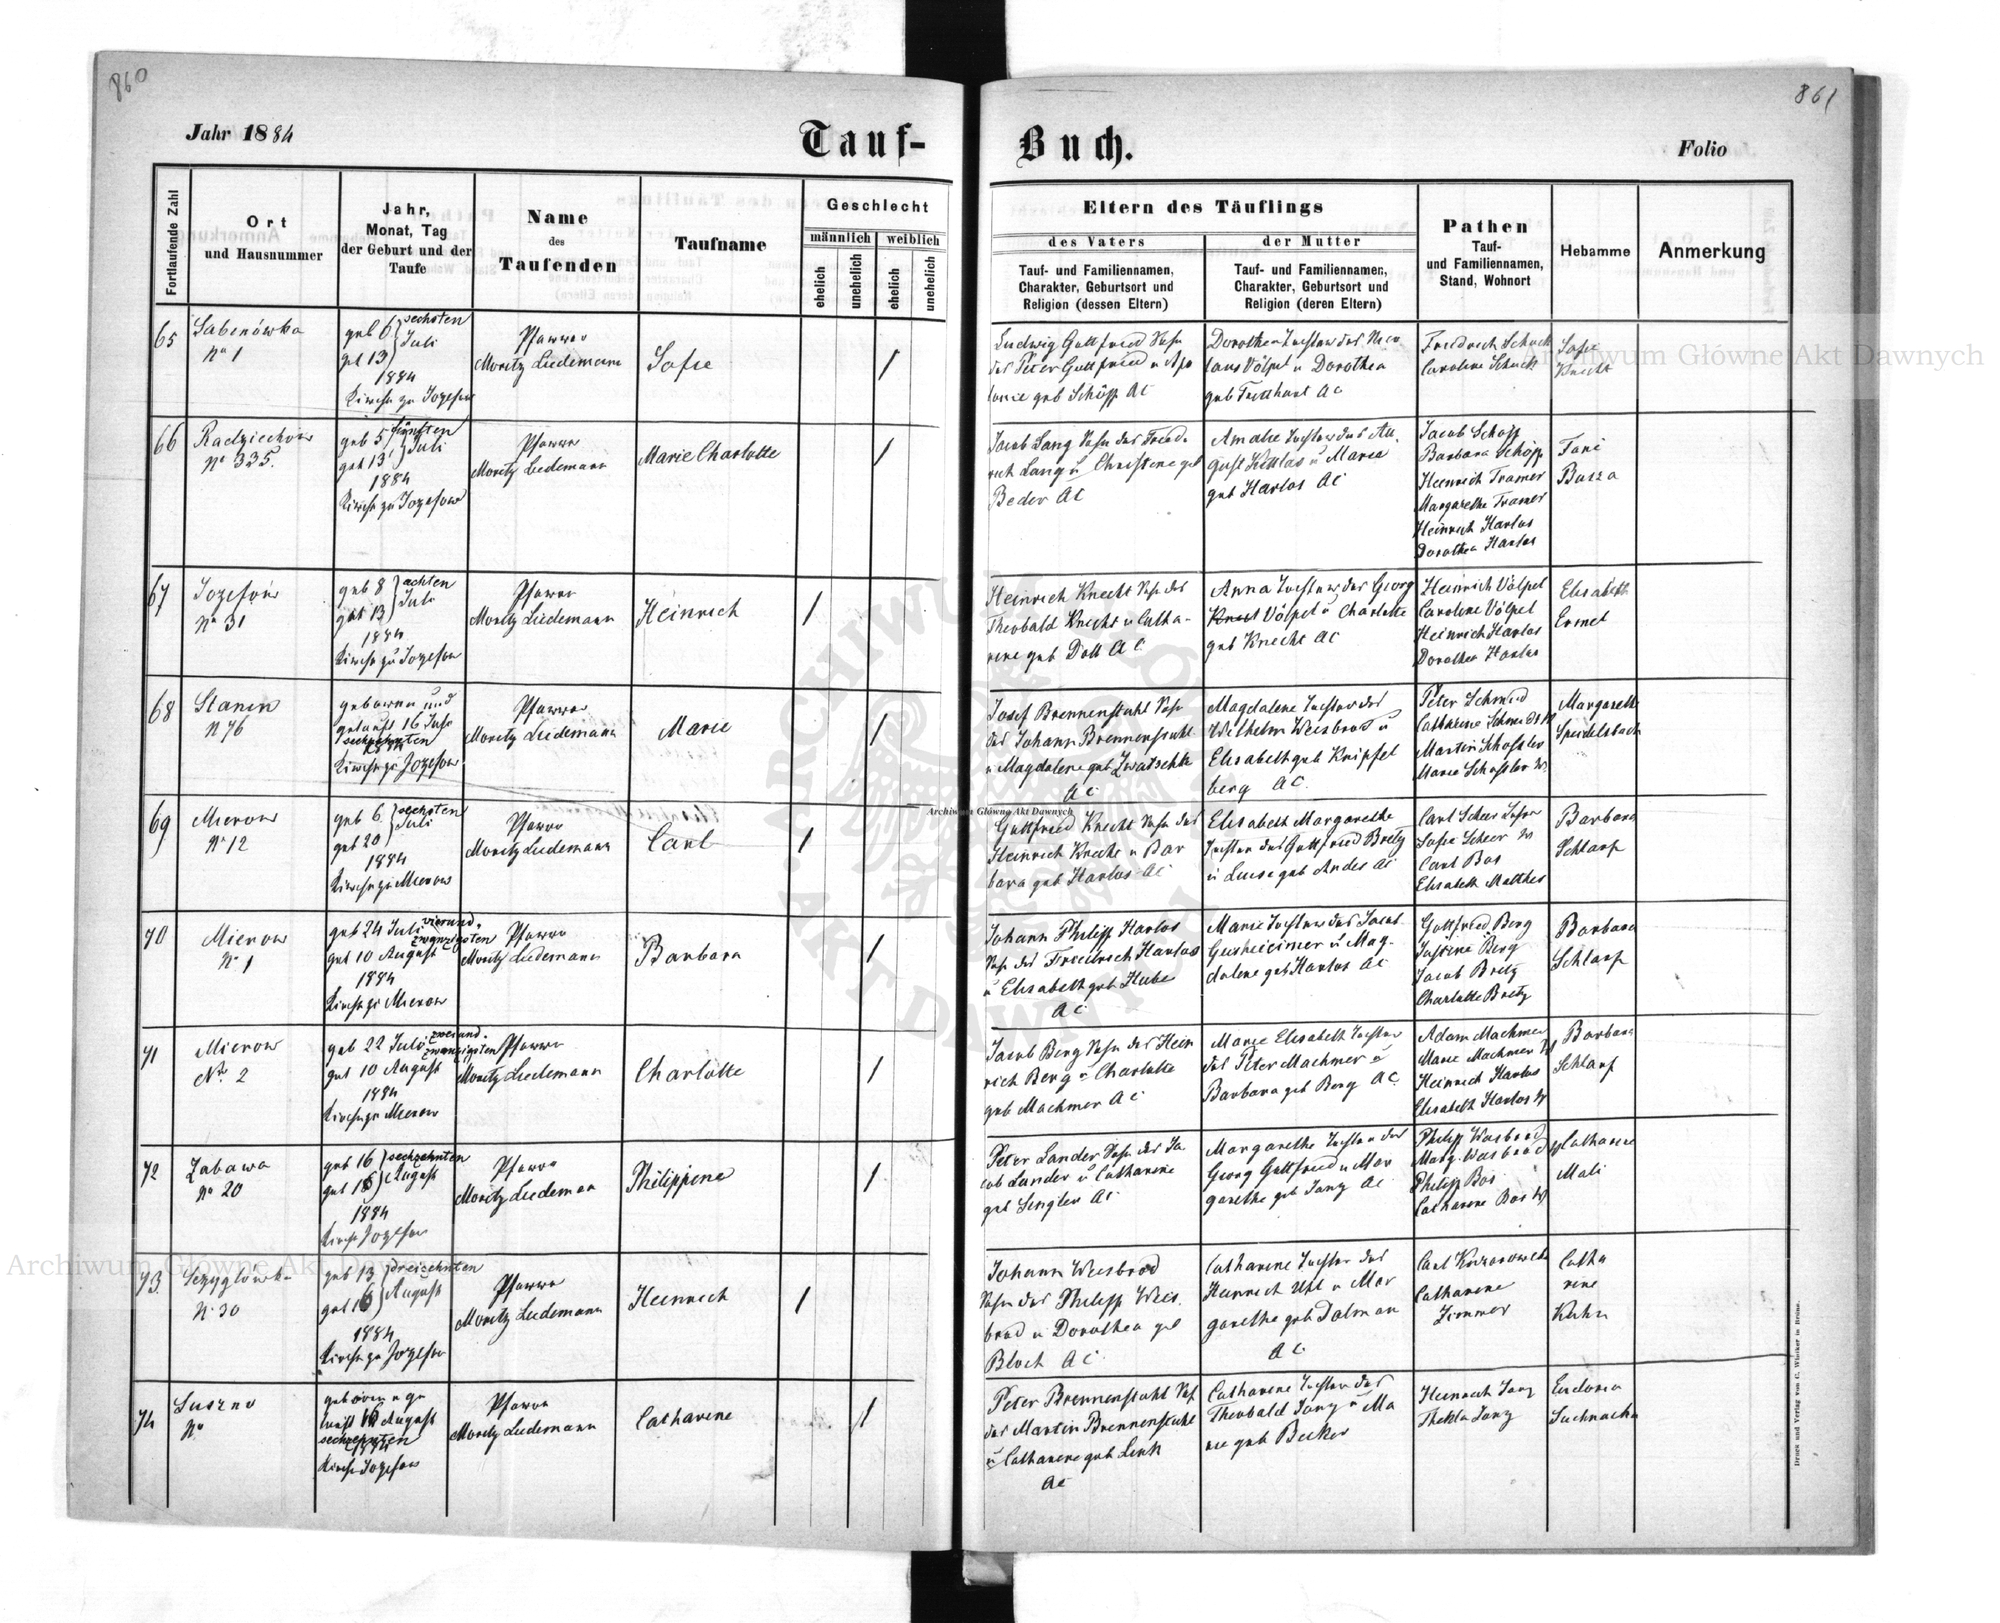 860
861
Jahr 1884
Tauf-
Buch.
Folio
Fortlaufende Zahl
Ort
und Hausnummer
Jahr,
Monat, Tag
der Geburt und der
Taufe
Name
des
Taufenden
Taufname
Geschlecht
männlich
weiblich
ehelich
unehelich
ehelich
unehelich
Eltern des Täuflings
des Vaters
der Mutter
Tauf- und Familiennamen,
Charakter, Geburtsort und
Religion (dessen Eltern)
Tauf- und Familiennamen,
Charakter, Geburtsort und
Religion (deren Eltern)
Pathen
Tauf-
und Familiennamen,
Stand, Wohnort
Hebamme
Anmerkung
65
Sabinówka
No 1
geb 6 sechsten
get 13 Juli
1884
Kirche zu Jozefow
Pfarrer
Moritz Liedemann
Sofie
Ludwig Gottfried Sohn
des Peter Gottfried u Apo
lonie geb Schöpp AC
Dorothea Tochter des Nico
laus Völpel u Dorothea
AC
Friedrich Schuck
Caroline Schuck
Sofie
Knecht
66
Radziechów
No 335.
geb 5 fünften
get 13 Juli
1884
Kirche zu Jozefow
Pfarrer
Moritz Liedemann
Marie Charlotte
Jacob Lang Sohn des Fried-
rich Lang u Christine geb
Beder AC
Amalie Tochter des Au-
gust Kittlas u Maria
geb Harlos AC
Jacob Schöpp
Barbara Schöpp
Heinrich Tramer
Margarethe Tramer
Heinrich Harlos
Dorothea Harlos
Fani
Busza
67
Jozefów
No 31
geb 8 achten
get 13 Juli
1884
Kirche zu Jozefow
Pfarrer
Moritz Liedemann
Heinrich
Heinrich Knecht Sohn des
Theobald Knecht u Catha-
rine geb Doll AC
Anna Tochter des Georg
Völpel u Charlotte
geb Knecht AC
Heinrich Völpel
Caroline Völpel
Heinrich Harlos
Dorothea Harlos
Elisabeth
Ermel
68
Stanin
N 76
geboren und
getauft 16 Juli
sechzehnten
1884
Kirche zu Jozefow
Pfarrer
Moritz Liedemann
Marie
Josef Brennenstuhl Sohn
des Johann Brennenstuhl
u Magdalene geb Zwatschke
AC
Magdalene Tochter des
Wilhelm Weisbrod u
Elisabeth geb Knipfel
berg AC
Peter Schmid
Catharine Schmid
Martin Schossler
Marie Schossler W.
Margarethe
Speidelsbach
69
Mierow
No 12
geb 6 sechsten
get 20 Juli
1884
Kirche zu Mierow
Pfarrer
Moritz Liedemann
Carl
Gottfried Knecht Sohn des
Heinrich Knecht u Bar
bara geb Harlos AC
Elisabeth Margarethe
Tochter des Gottfried Bretz
u Luise geb Andes AC
Carl Scheer
Sofie Scheer W
Carl Bas
Elisabeth Matthes
Barbara
Schlarp
70
Mierow
No 1
geb 24 Juli vierund-
zwanzigsten
get 10 August
1884
Kirche zu Mierow
Pfarrer
Moritz Liedemann
Barbara
Johann Philipp Harlos
Sohn des Friedrich Harlos
u Elisabeth geb Hube
AC
Marie Tochter des Jacob
u Mag-
dalene geb Harlos AC
Gottfried Berg
Justine Berg
Jacob Bretz
Charlotte Bretz
Barbara
Schlarp
71
Mierow
No. 2
geb 22 Juli zweiund-
zwanzigsten
get 10 August
1884
Kirche zu Mierow
Pfarrer
Moritz Liedemann
Charlotte
Jacob Berg Sohn des Hein
rich Berg u Charlotte
geb Machmer AC
Marie Elisabeth Tochter
des Peter Machmer u
Barbara geb Berg AC
Adam Machmer
Marie Machmer W
Heinrich Harlos
Elisabeth Harlos W
Barbara
Schlarp
72
Zabawa
No 20
geb 16 sechzehnten
get 16 August
1884
Kirche Jozefow
Pfarrer
Moritz Liedeman
Philippine
Peter Lander Sohn des Ja
cob Lander u Catharine
geb Sengler AC
Margarethe Tochter des
Georg Gottfried u Mar
garethe geb Janz AC
Philipp Weisbrod
Marg. Weisbrod W
Philipp Bos
Catharine Bos W
Catharine
Mali
73.
Sczyglówka
N. 30
geb 13 dreizehnten
get 16 August
1884
Kirche zu Jozefow
Pfarrer
Moritz Liedemann
Heinrich
Johann Weisbrod
Sohn des Philipp Weis
brod u Dorothea geb
Bloch AC
Catharine Tochter des
Heinrich Uhl u Mar
garethe geb Dalman
AC
Carl
Catharine
Zimmer
Catha
rine
Kuhn
74
Suszno
No
geboren u ge
tauft 16 August
sechzehnten
1884
Kirche Jozefow
Pfarrer
Moritz Liedemann
Catharine
Peter Brennenstuhl Sohn
des Martin Brennenstuhl
u Catharine geb Link
AC
Catharine Tochter des
Theobald Janz u Ma
rie geb Becker
Heinrich Janz
Thekla Janz
Eudoxia
Suchnacka
Druck und Verlag von C. Winiker in Brünn.
Archiwum Główne Akt Dawnych
Archiwum Główne Akt Dawnych
Archiwum Główne Akt Dawnych
ARCHIWUM GŁÓWNE AKT DAWNYCH